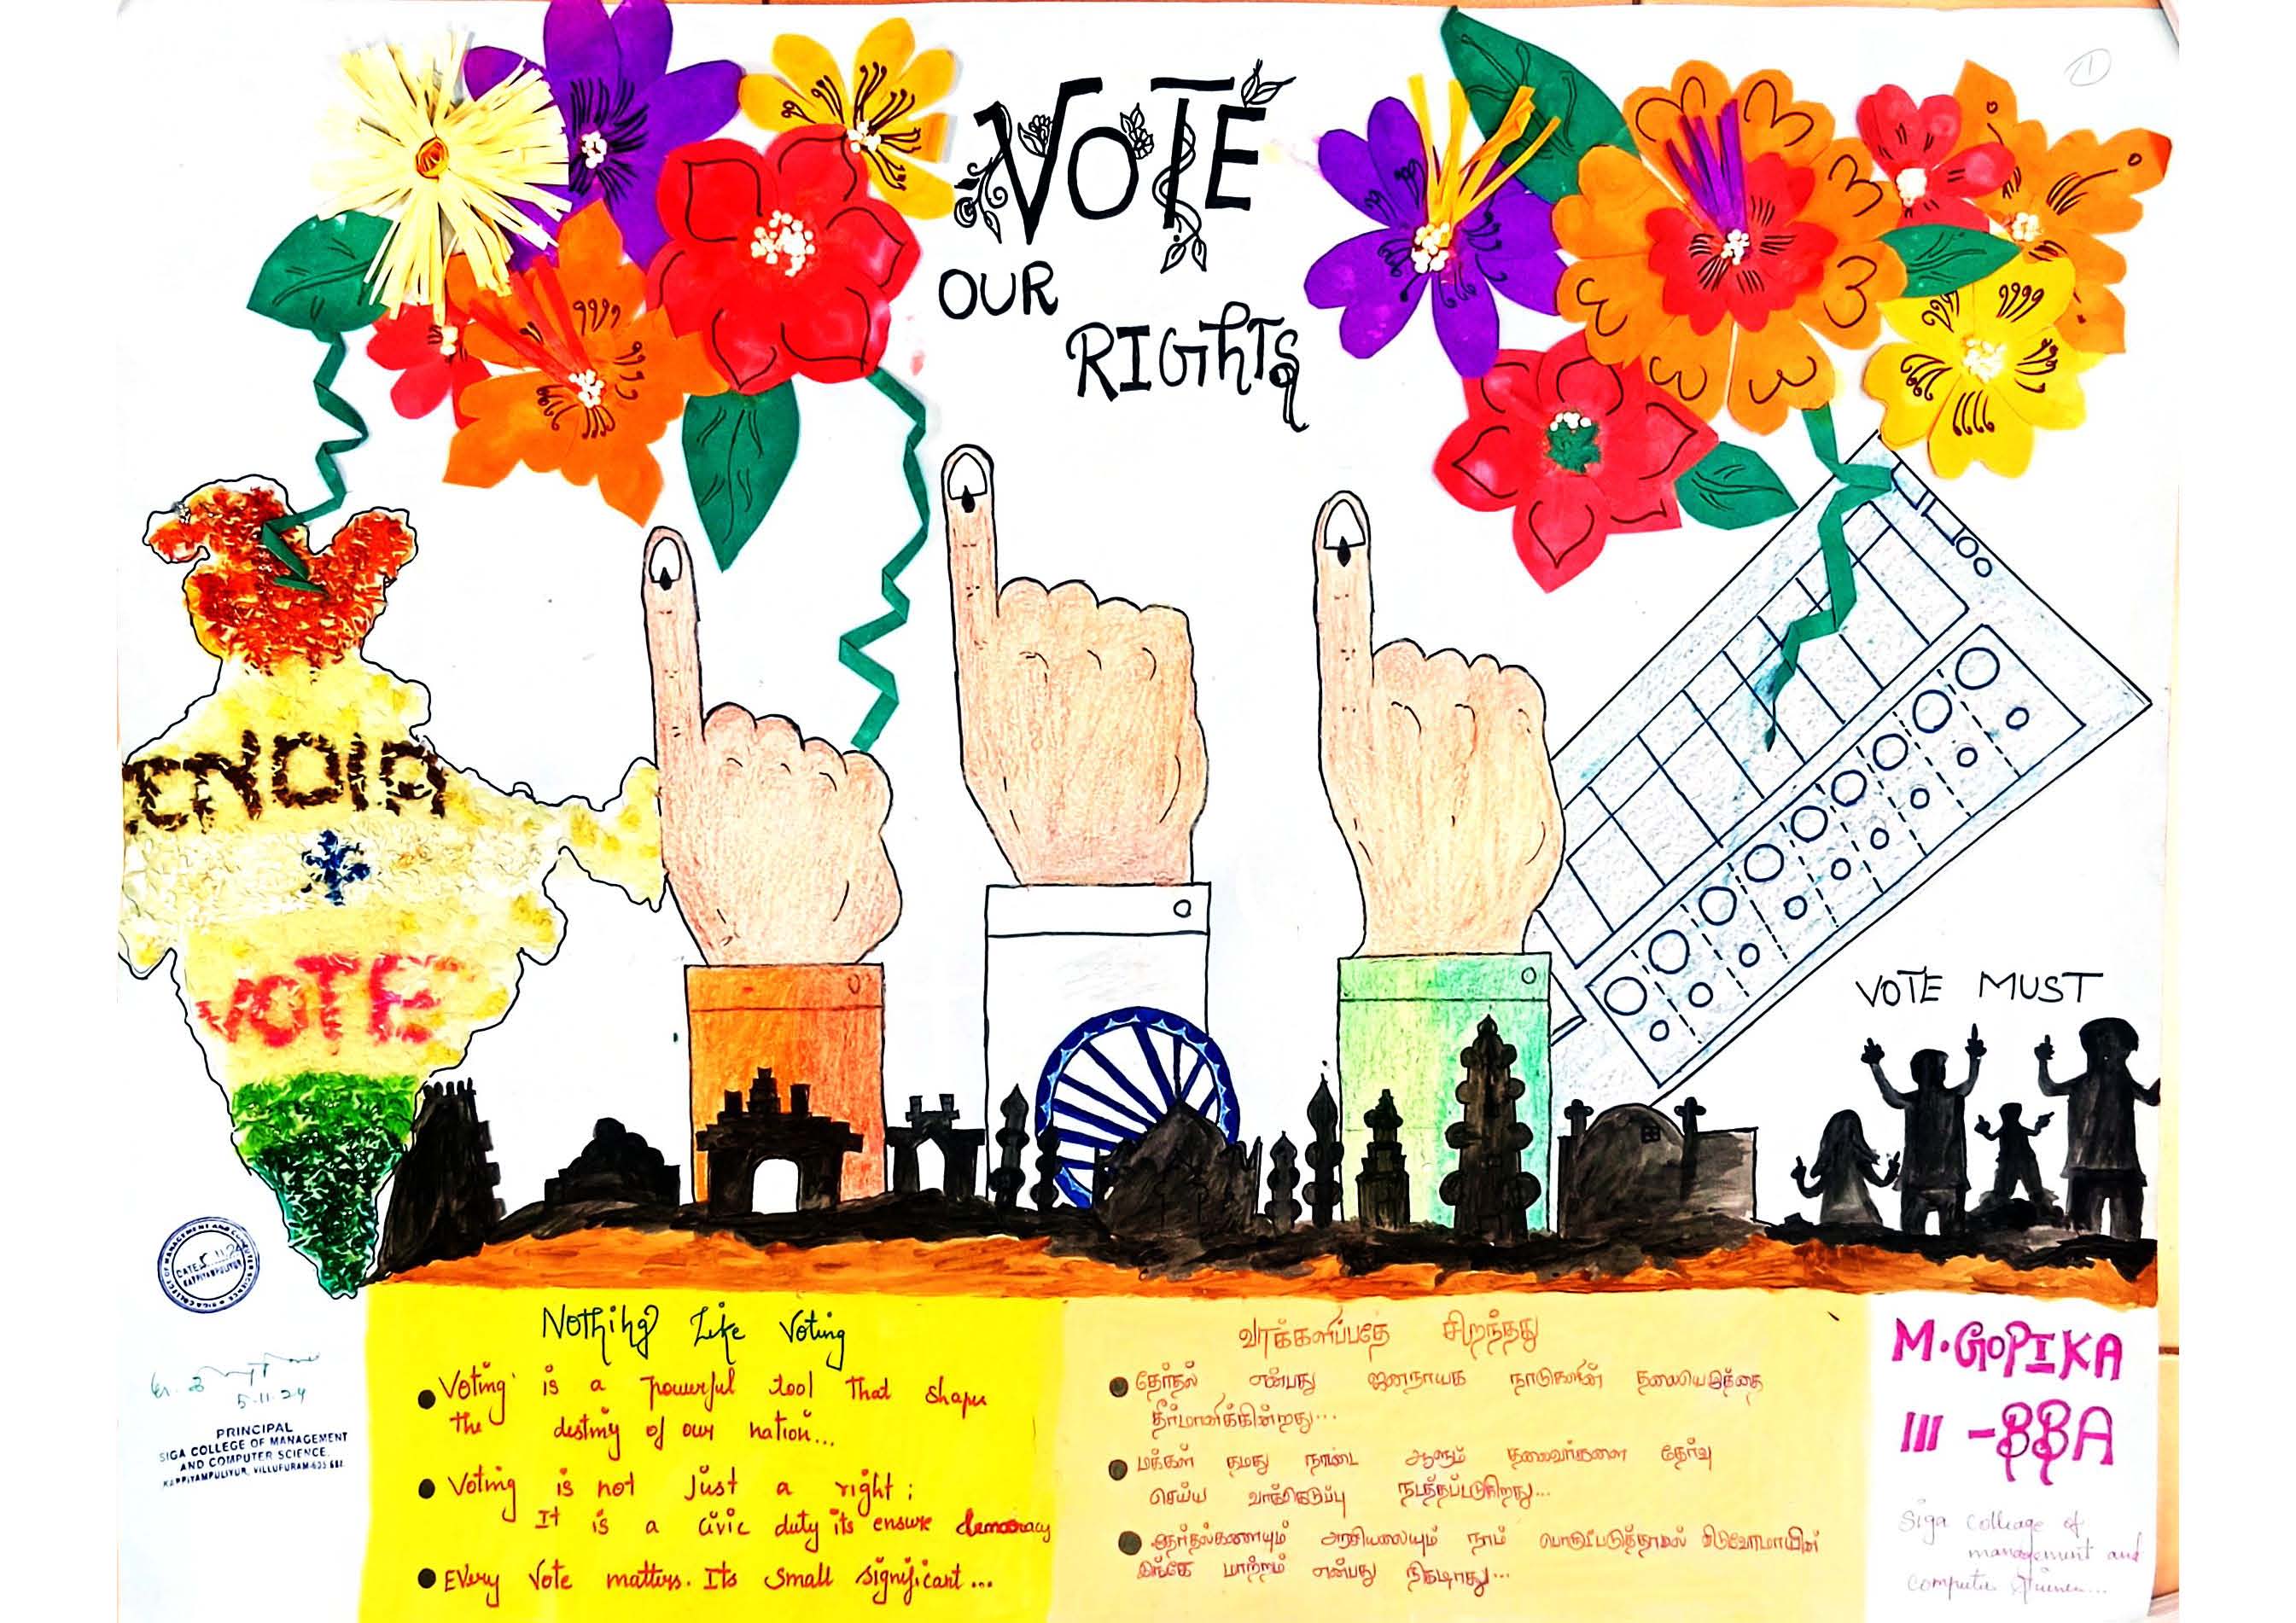 VOTE
OUR
RIGHTS
INDIA
VOTE
VOTE MUST
Nothing Like Voting
Voting is a powerful tool that shape
the destiny of our nation...
Voting is not just a right;
It is a civic duty its ensure democracy
Every Vote matters. Its small significant...
வாக்களிப்பதே சிறந்தது
தேர்தல் என்பது ஜனநாயக நாடுகளின்
தீர்மானிக்கின்றது...
மக்கள் தமது நாட்டை ஆளும் தலைவர்களை தேர்வு
செய்ய வாக்கெடுப்பு நடத்தப்படுகிறது...
அரசியலையும் நாம்
இங்கே மாற்றம் என்பது நிகழாது...
M.GOPIKA
III -BBA
Siga colleage of
management and
computer
SIGA COLLEGE OF MANAGEMENT AND COMPUTER SCIENCE
DATE 5.11.24
KAPPIYAMPULIYUR
5-11-24
PRINCIPAL
SIGA COLLEGE OF MANAGEMENT
AND COMPUTER SCIENCE,
KAPPIYAMPULIYUR, VILLUPURAM-605 601.
1